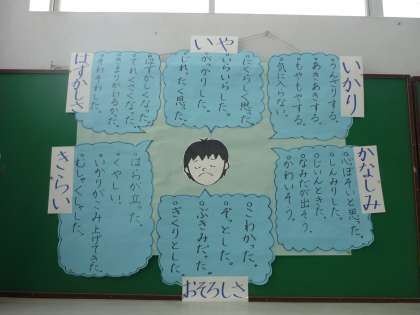 いかり
。うんざりする。
。あきあきする。
。もやもやする。
。気に入らない。
いや
。にくらしく思った。
。いらいらした。
。がっかりした。
。じれったく思った。
はずかしさ
。はずかしくなった。
。てれくさくなった。
。きまりがわるかった。
。そわそわした。
かなしみ
。心ぼそいと思った。
。しんみりした。
。じいんときた。
。なみだが出そう。
。かわいそう。
おそろしさ
。こわかった。
。ぞっとした。
。ぶきみだった。
。ぎくりとした。
きらい
。はらが立った。
。くやしい。
。いかりがこみ上げてきた。
。むしゃくしゃした。